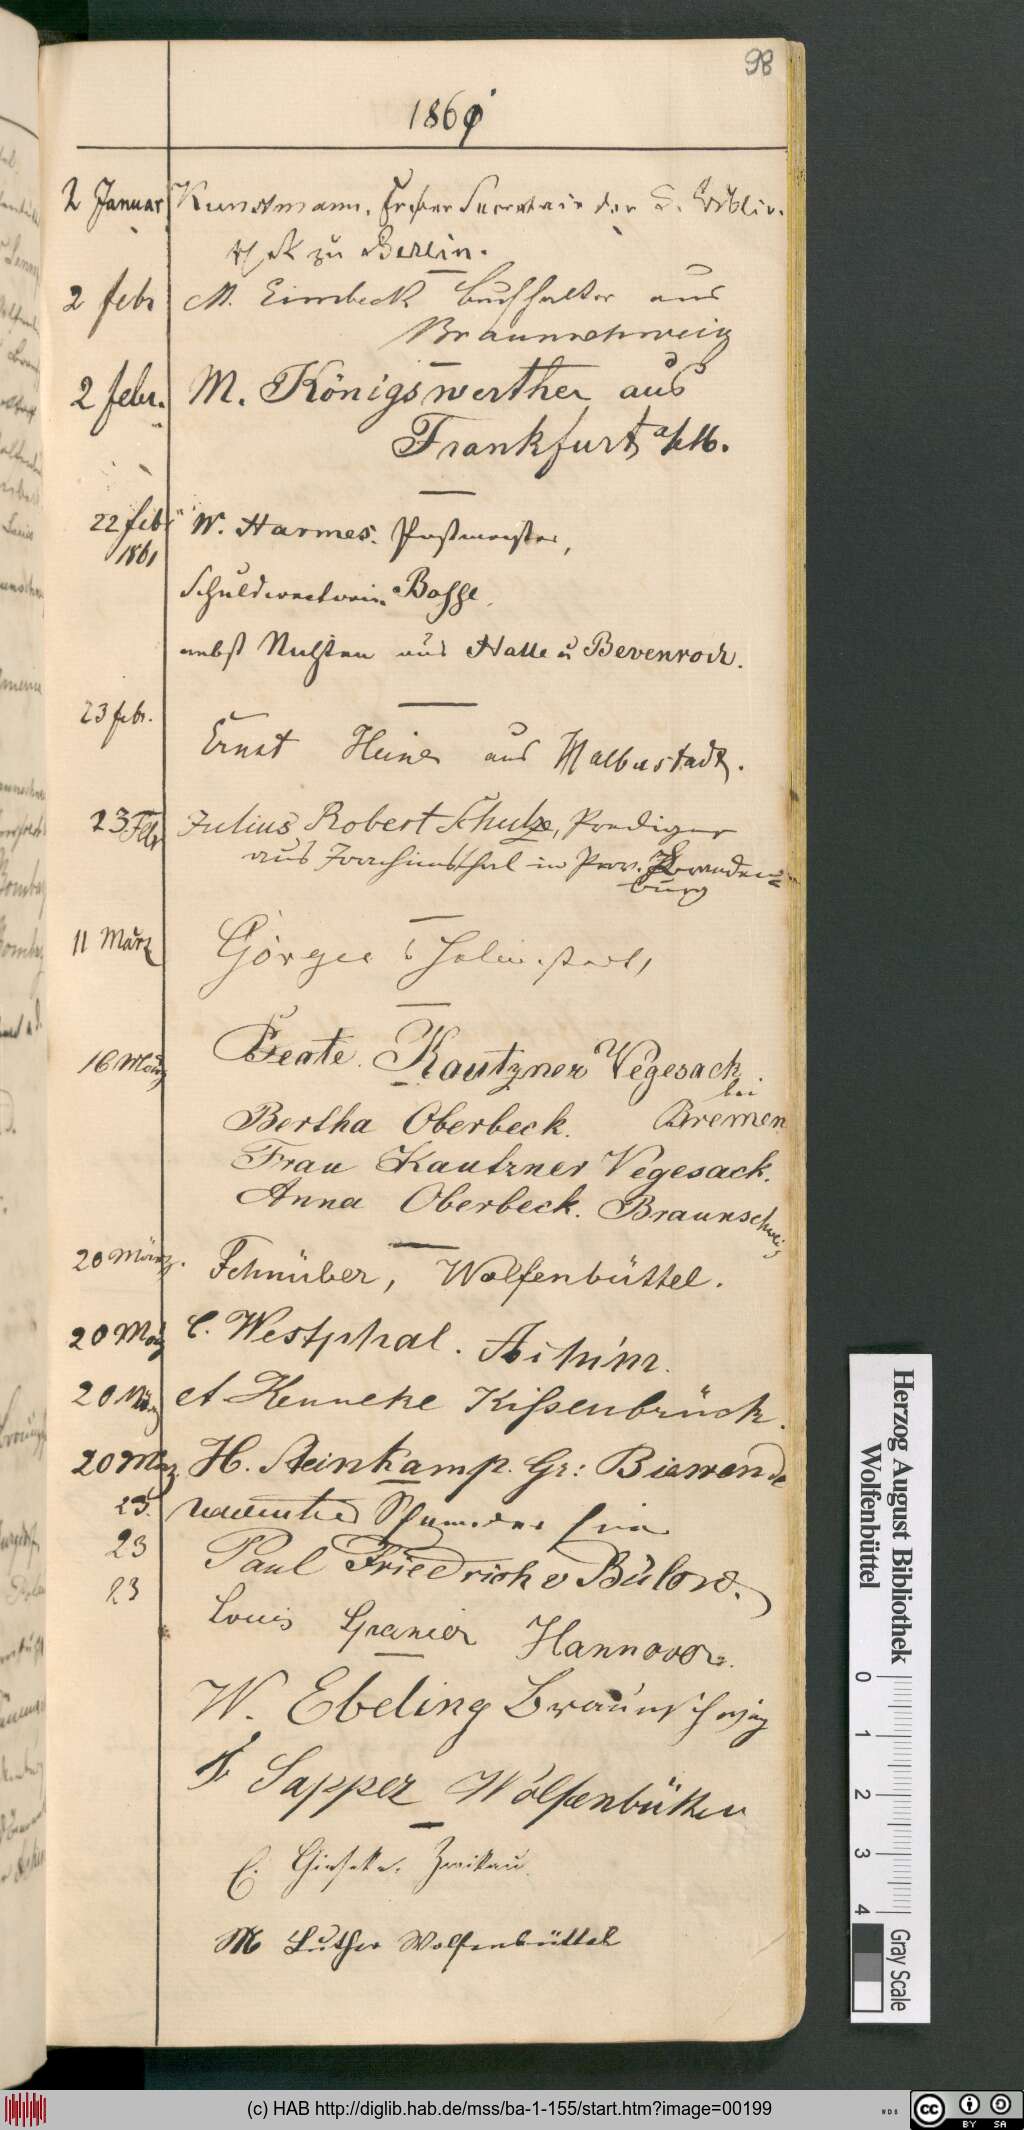 98
1861
2 Januar Kunstmann, Erster Secretair der K. Biblio-
thek zu Berlin.
2 febr M. Eimbeck Buchhalter aus
Braunschweig
2 febr. M. Königswerther aus
Frankfurt a/M.
22 febr W. Harmes. Postmeister,
1861
Schuldirectorin Bosse,
nebst Nichten aus Halle u Bevenrode.
23 febr.
Ernst Heine aus Halberstadt.
23. Febr Julius Robert Schulze, Prediger
aus Joachimsthal in Prov. Branden-
burg
11 März Görges
16 März Beate Kautzner Vegesack
bei
Bertha Oberbeck. Bremen
Frau Kautzner Vegesack.
Anna Oberbeck. Braunschweig
20 März. Schnüber, Wolfenbüttel.
20 März C. Westphal. Achim.
20 März A Henneke Kissenbrück.
20 März. H. Steinkamp. Gr: Biewende
23.
23 Paul Friedrich v Bülow.
23 Louis Hannover.
W. Ebeling Braunschweig
F Sapper Wolfenbüttel
E. Zwikau.
M Luther Wolfenbüttel
Herzog August Bibliothek
Wolfenbüttel
0 1 2 3 4 Gray Scale
(c) HAB http://diglib.hab.de/mss/ba-1-155/start.htm?image=00199
WDB
cc BY SA